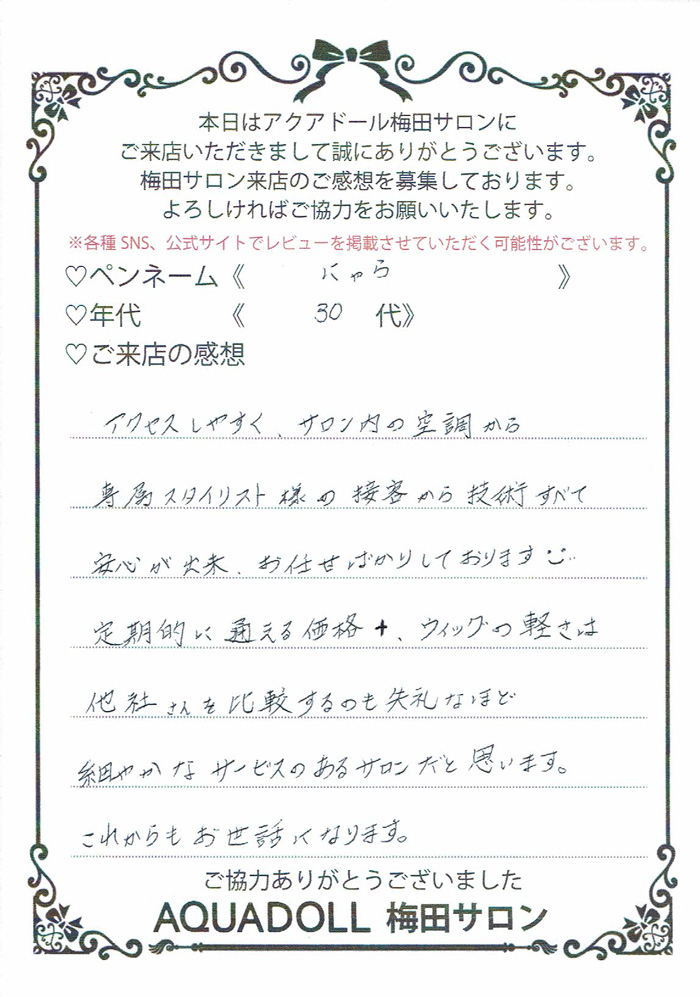 本日はアクアドール梅田サロンに
ご来店いただきまして誠にありがとうございます。
梅田サロン来店のご感想を募集しております。
よろしければご協力をお願いいたします。
※各種SNS、公式サイトでレビューを掲載させていただく可能性がございます。
♡ペンネーム《 にゃら 》
♡年代 《 30 代》
♡ご来店の感想
アクセスしやすく、サロン内の空調から
専属スタイリスト様の接客から技術すべて
安心が出来、お任せばかりしております
定期的に通える価格+、ウィッグの軽さは
他社さんを比較するのも失礼なほど
細やかなサービスのあるサロンだと思います。
これからもお世話になります。
ご協力ありがとうございました
AQUADOLL 梅田サロン